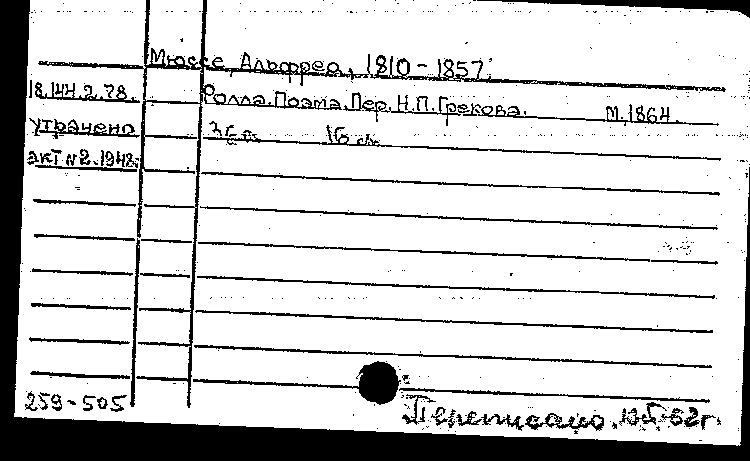 Мюссе, Альфред, 1810-1857.
18.144.2.78. Ролла. Поэма. Пер. Н.П. Грекова. М., 1864.
утрачено 16
акт №2. 1948г.
259-505 Переписано. 62г.